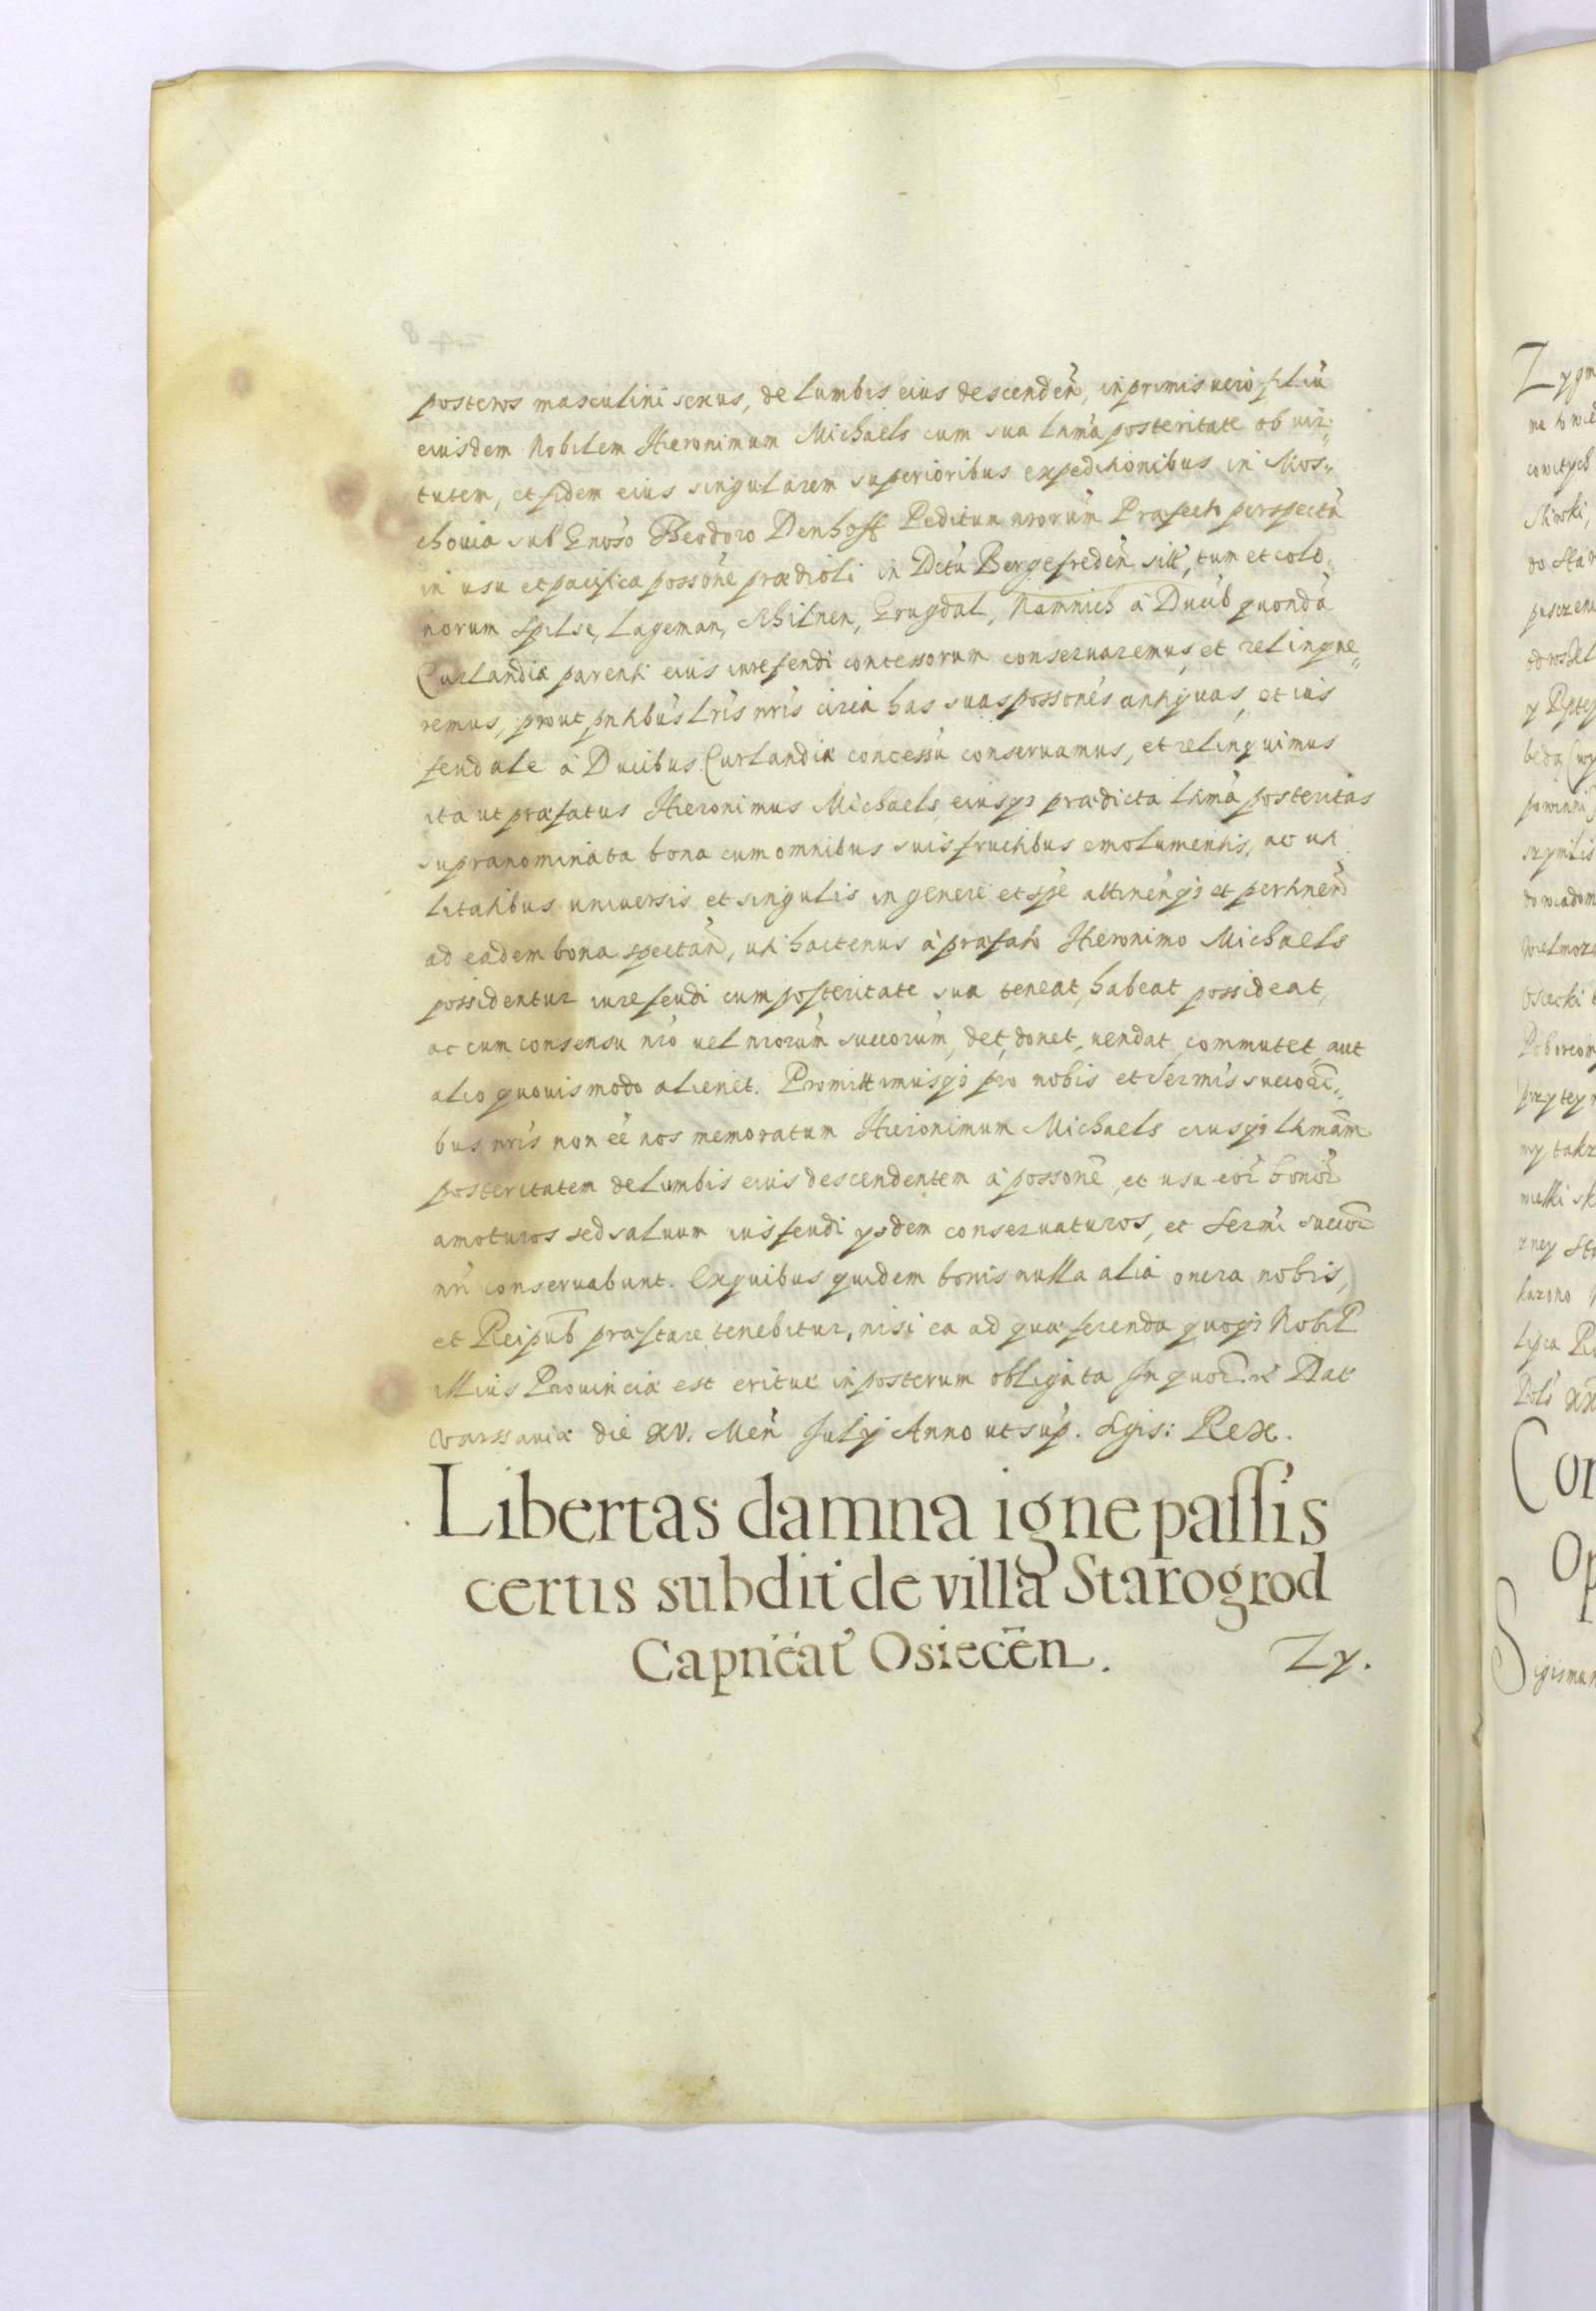 posteros masculini sexus, de lumbis eius descendeñ, inprimis uero filiū
eiusdem Nobilem Hieronimum Michaels cum sua lñma posteritate ob uir„
tutem, et fidem eius singularem superioribus expeditionibus in Mos„
chouia sub Gnoso Theodoro Denhoff Peditum nrorum Præfecto perspectā
in usu et pacifica possone prædioli in Dctu Bergefreden sitt, tum et colo„
norum Spilse, Lageman, Khilnen, Grugdal, Namnich à Ducib quondā
Curlandiæ parenti eius iure feudi concessorum conseruaremus et relinque„
remus, prout pntibus lris nris circa has suas possones antiquas, et ius
feudale à Ducibus Curlandiæ concessū conseruamus, et relinquimus
ita ut præfatus Hieronimus Michaels eiusq; prædicta lñma posteritas
supranominata bona cum omnibus suis fructibus emolumentis, ac uti
litatibus uniuersis et singulis in genere et spe attinenq; et pertineñ
ad eadem bona spectañ, uti hactenus à præfato Hieronimo Michaels
possidentur iure feudi cum posteritate sua teneat, habeat possideat,
ac cum consensu nro uel nrorum succorum, det, donet, uendat, commutet, aut
alio quouis modo alienet. Promittimusq; pro nobis et Sermis succori„
bus nris non ee nos memoratum Hieronimum Michaels eiusq; lñmam
posteritatem de lumbis eius descendentem à possone, et usu eor bonor
amoturos sed saluum ius feudi ysdem conseruaturos, et Sermi succor
nri conseruabunt. Ex quibus quidem bonis nulla alia onera nobis,
et Reipub præstare tenebitur, nisi ea ad quæ ferenda quoq; Nobil
illius Prouinciæ est eritue inposterum obligata In quor. rei Dat
Varssauiæ die XV. Men July Anno ut sup. Sgis: Rex.
Libertas damna igne passis
certis subdit de villa Starogrod
Capneat Osiecen.
Zy.